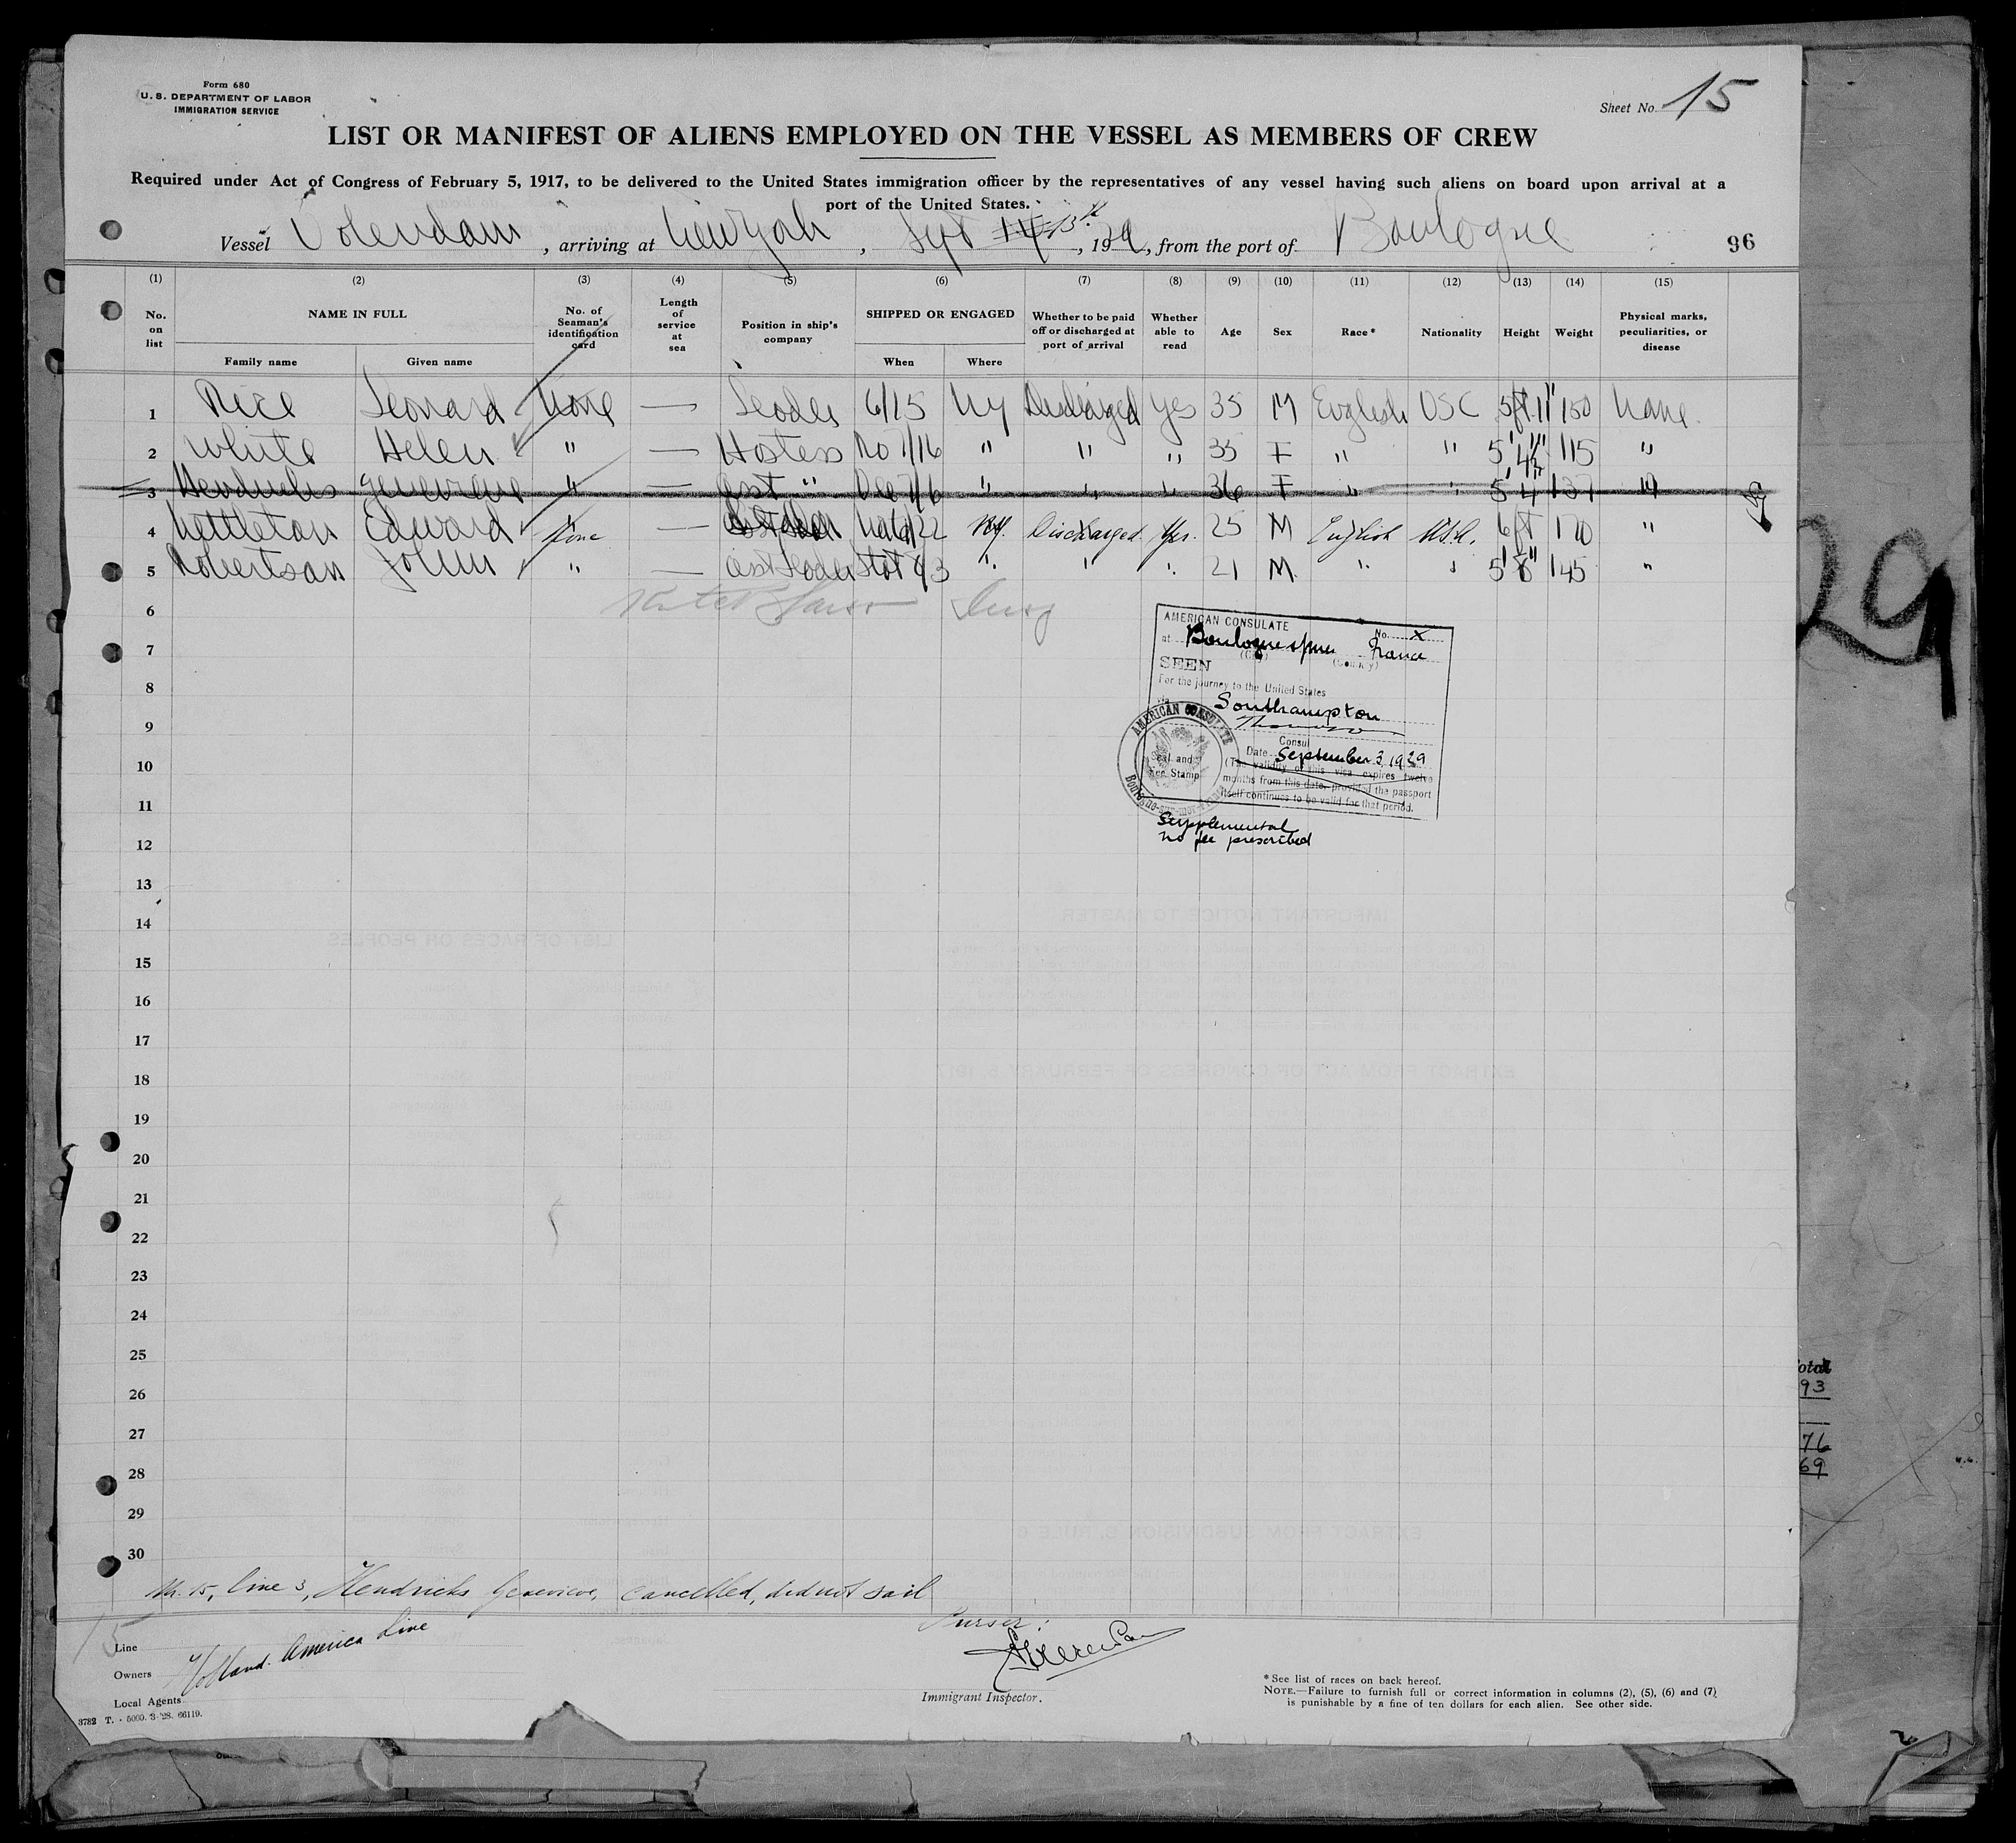 Form 680
U. S. DEPARTMENT OF LABOR
IMMIGRATION SERVICE
Sheet No. 15
LIST OR MANIFEST OF ALIENS EMPLOYED ON THE VESSEL AS MEMBERS OF CREW
Required under Act of Congress of February 5, 1917, to be delivered to the United States immigration officer by the representatives of any vessel having such aliens on board upon arrival at a
port of the United States.
Vessel Volendam, arriving at New York, Sept 14 13th, 1929, from the port of Boulogne
96
(1) (2) (3) (4) (5) (6) (7) (8) (9) (10) (11) (12) (13) (14) (15)
No. on list
NAME IN FULL
Family name
Given name
No. of Seaman's identification card
Length of service at sea
Position in ship's company
SHIPPED OR ENGAGED
When
Where
Whether to be paid off or discharged at port of arrival
Whether able to read
Age
Sex
Race*
Nationality
Height
Weight
Physical marks, peculiarities, or disease
1 Rice Leonard None — Leader 6/15 NY Discharged Yes 35 M English USC 5ft 11" 150 None.
2 White Helen " — Hostess 7/16 " " " 35 F " " 5' 4½" 115 "
3 Hendricks Genevieve " — Asst " " " " 36 F " " 5' 4 137 "
4 Nettleton Edward None — 6/22 NY. Discharged Yes. 25 M English 6ft 170 "
5 Robertson John " — asst Leader " " " 21 M. " " 5' 8" 145 "
6
7
8
9
10
11
12
13
14
15
16
17
18
19
20
21
22
23
24
25
26
27
28
29
30
AMERICAN CONSULATE
No. X
at Boulogne s/mer France
(City) (Country)
SEEN
For the journey to the United States
via Southampton
Consul
Date September 3 1929
(The validity of this visa expires twelve
months from this date, provided the passport
itself continues to be valid for that period.
AMERICAN CONSULATE
Seal and
Fee Stamp
Supplemental
no fee prescribed
15, line 3, Hendricks Genevieve, cancelled, did not sail
15
Purser:
Line
Owners Holland America Line
Local Agents
Immigrant Inspector.
3782 T. - 5000. 3-'28. 66119.
*See list of races on back hereof.
NOTE.—Failure to furnish full or correct information in columns (2), (5), (6) and (7)
is punishable by a fine of ten dollars for each alien. See other side.
29
Total
93
76
69